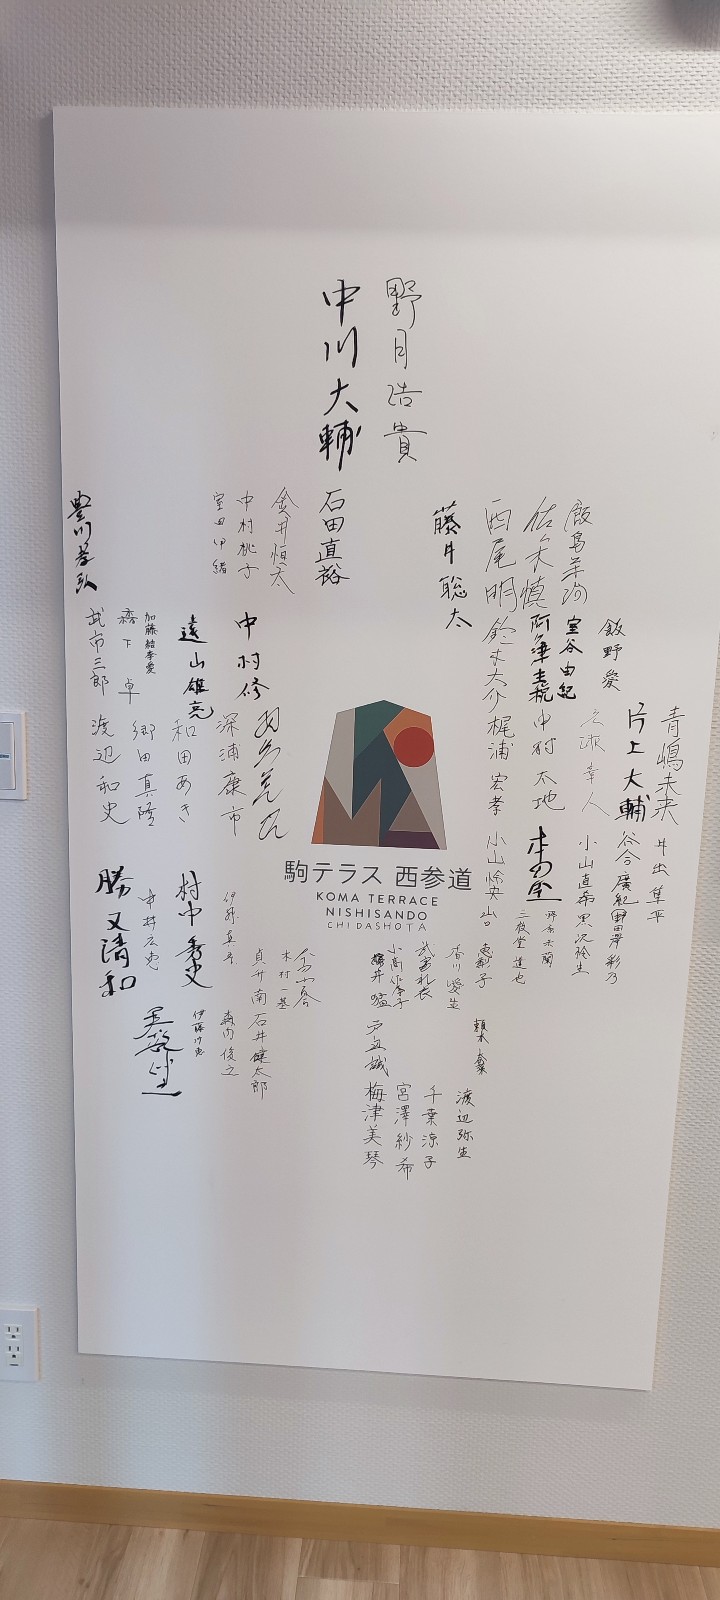 野月浩貴
中川大輔
飯島栄治
佐々木慎
西尾明
藤井聡太
石田直裕
金井恒太
中村桃子
室田伊緒
豊川孝弘
飯野愛
室谷由紀
阿久津主税
鈴木大介
中村修
遠山雄亮
加藤結李愛
武市三郎
青嶋未来
片上大輔
中村太地
梶浦宏孝
深浦康市
和田あき
郷田真隆
渡辺和史
駒テラス 西参道
KOMA TERRACE
NISHISANDO
CHIDASHOTA
井出隼平
谷合廣紀
野田澤彩乃
小山直希
黒沢怜生
野原未蘭
三枚堂達也
小山怜央
山口恵梨子
村中秀史
勝又清和
香川愛生
武富礼衣
小高佐季子
木村一基
貞升南
石井健太郎
森内俊之
伊藤沙恵
戸辺誠
渡辺弥生
千葉涼子
宮澤紗希
梅津美琴